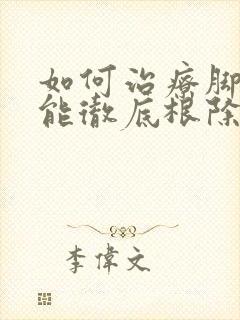 如何治療脚
能徹底根除
李偉文